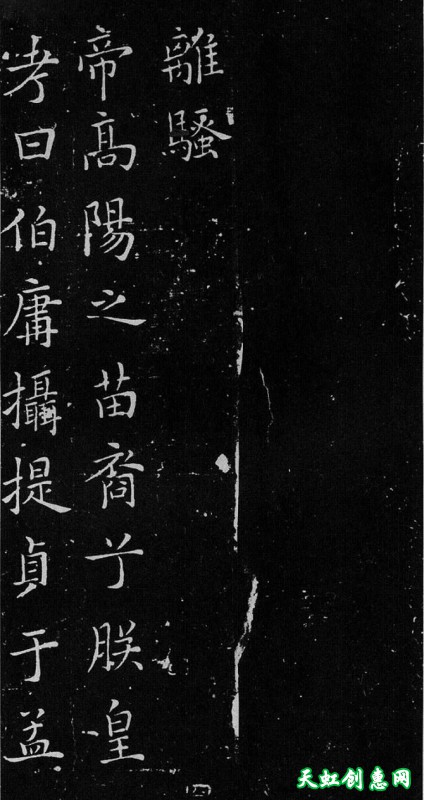 離騷
帝髙陽之苗裔兮朕皇
考曰伯庸攝提貞于孟
天虹创惠网